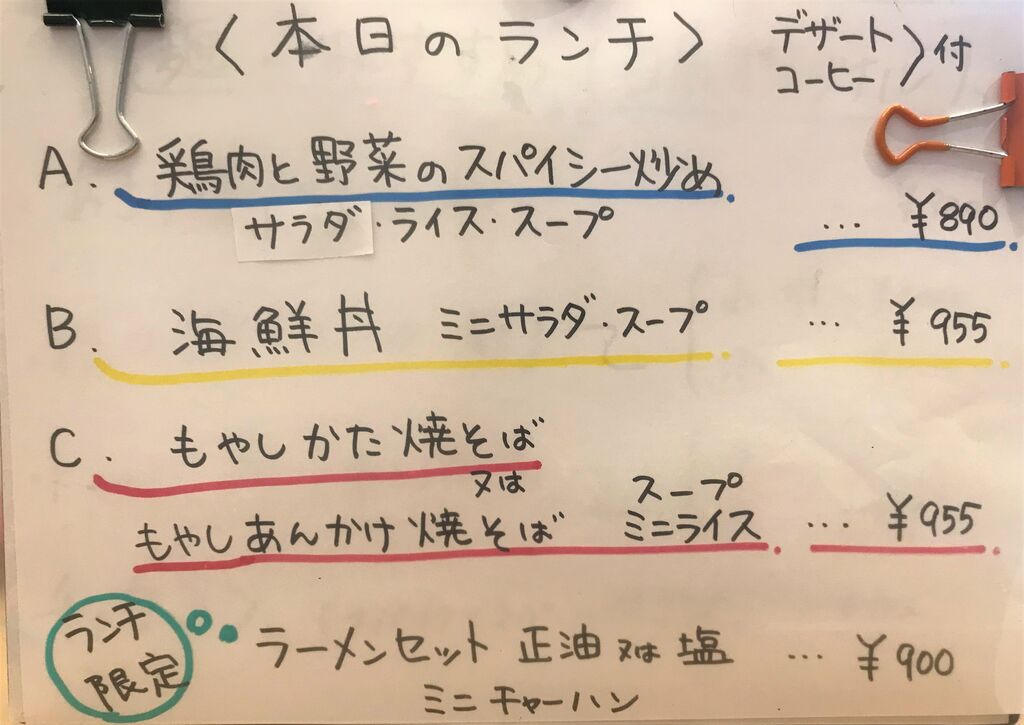 〈本日のランチ〉 デザート
コーヒー 〉付
A. 鶏肉と野菜のスパイシー炒め
サラダ・ライス・スープ … ¥890
B. 海鮮丼 ミニサラダ・スープ … ¥955
C. もやしかた焼そば
又は
もやしあんかけ焼そば スープ
ミニライス … ¥955
ランチ
限定
ラーメンセット 正油又は塩 … ¥900
ミニチャーハン